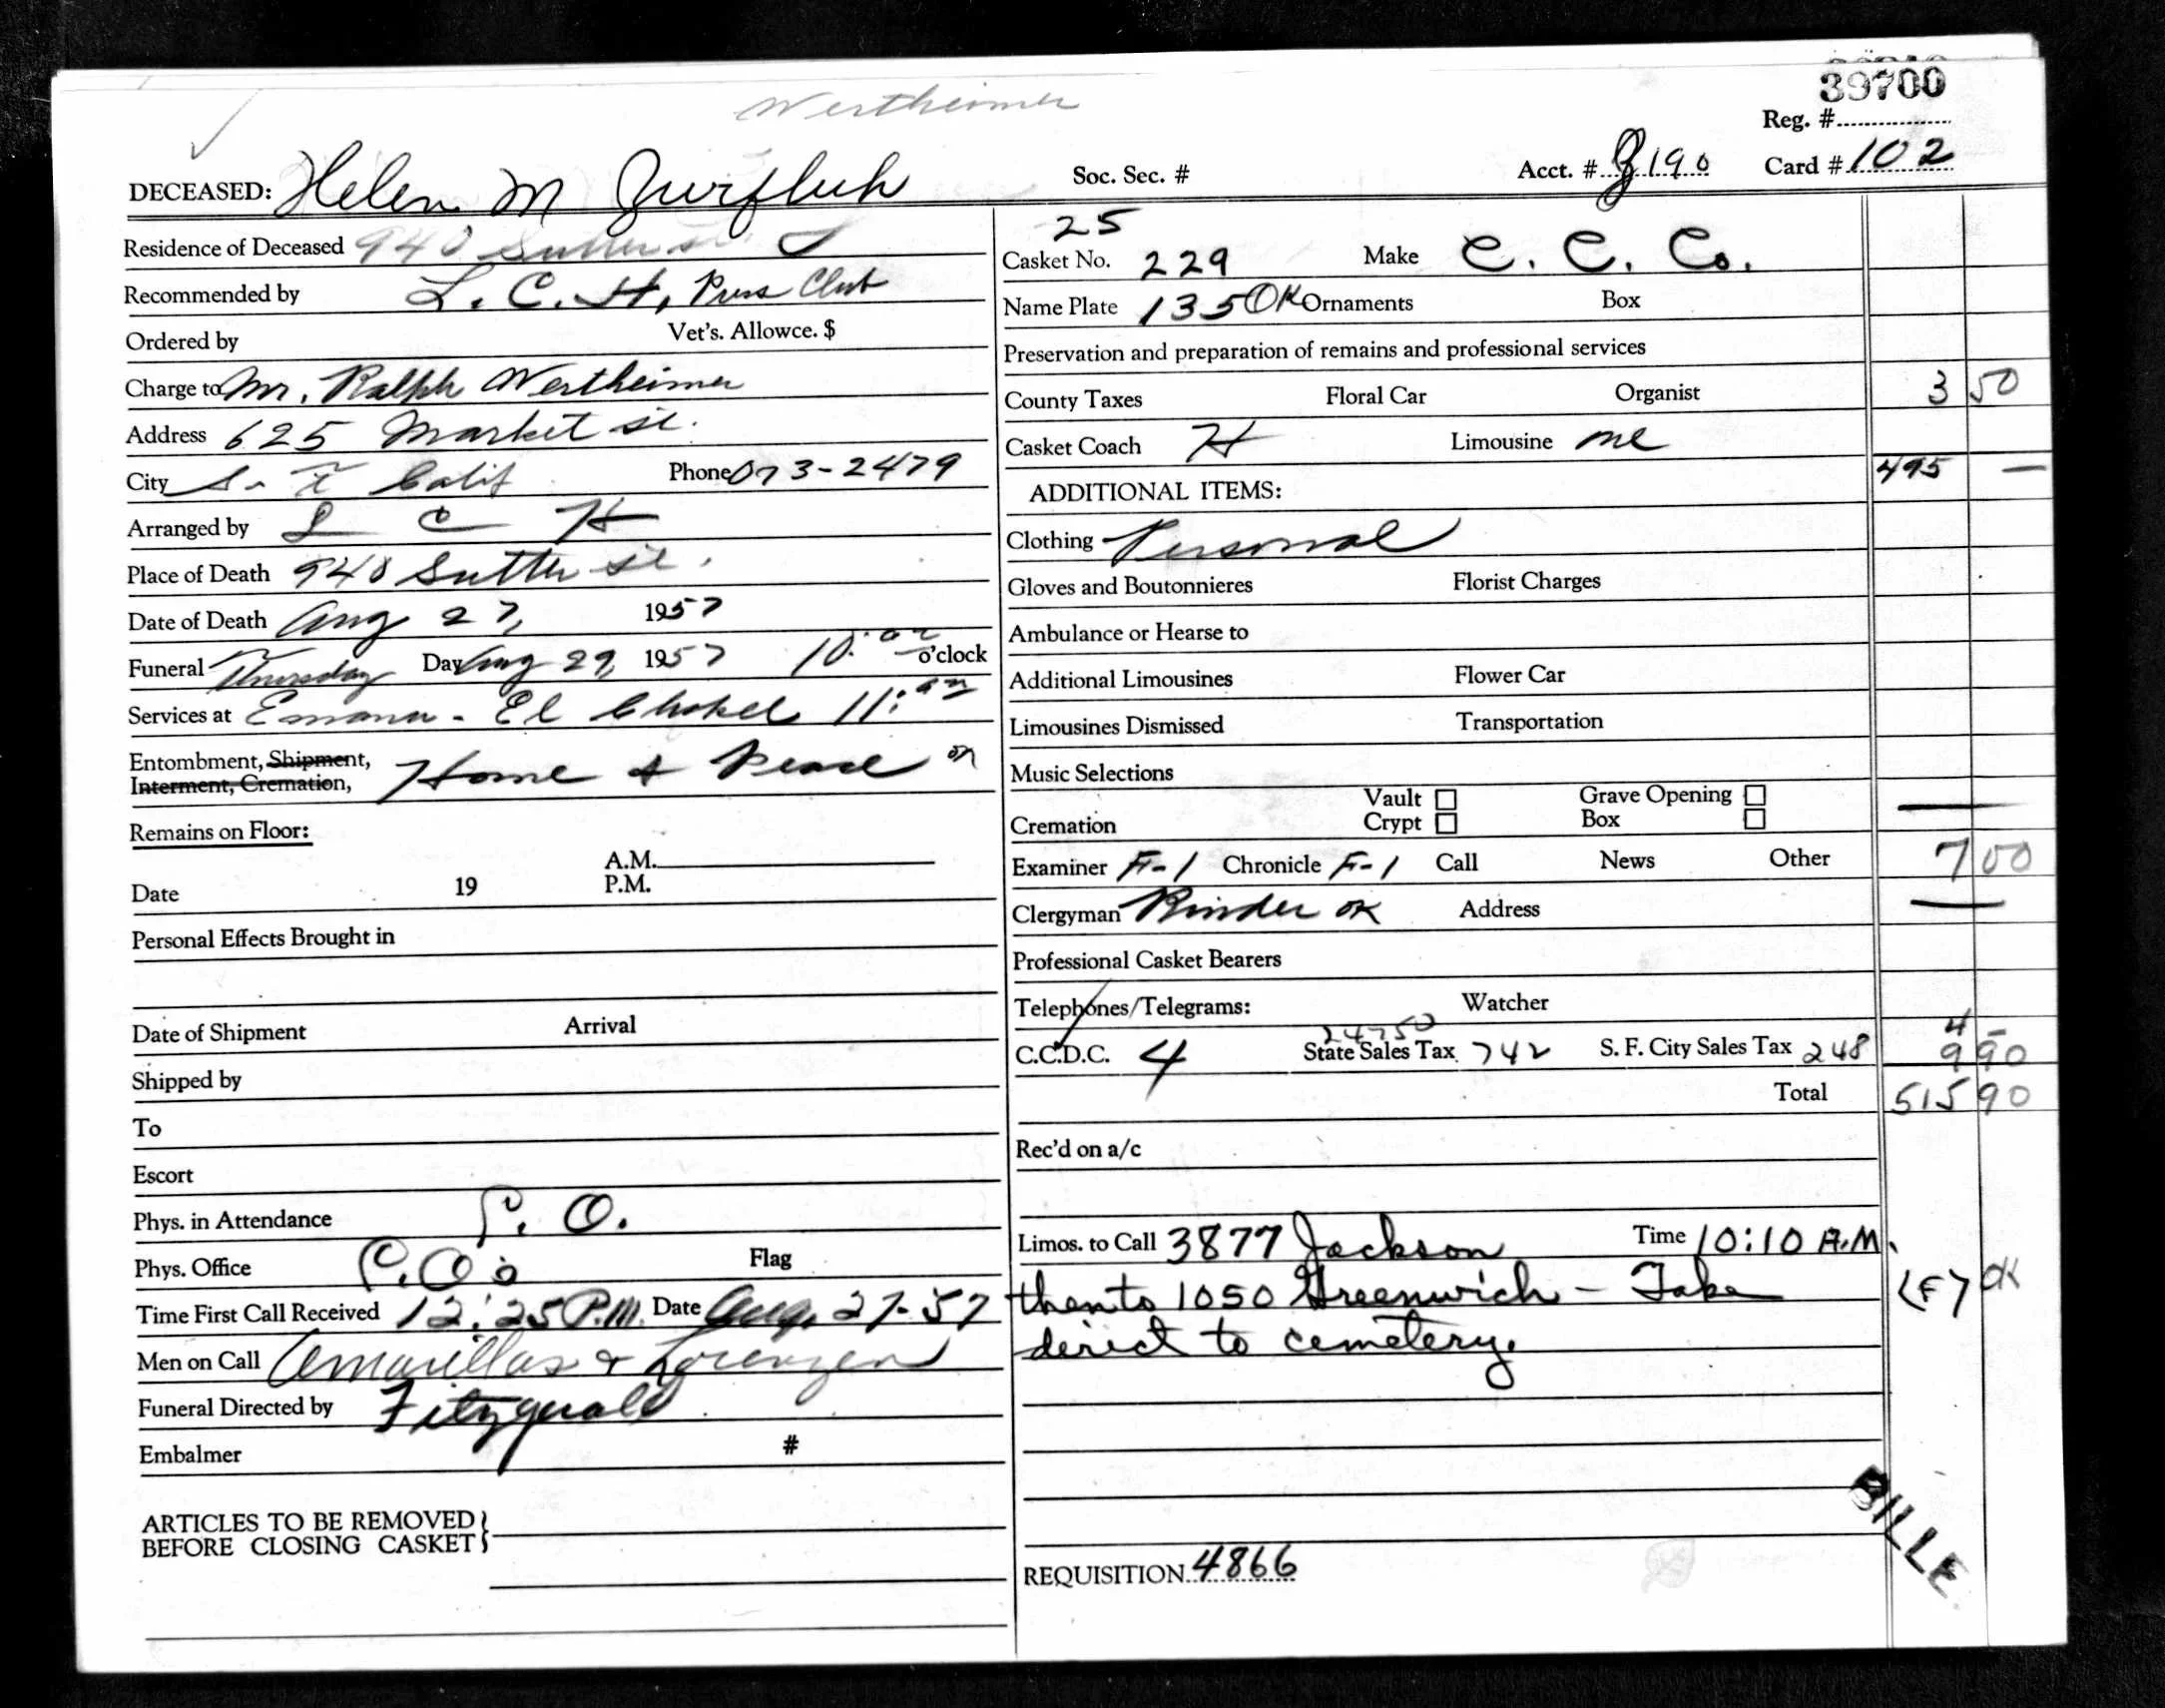 Wertheimer
39700
Reg. #
DECEASED: Helen M Zurfluh Soc. Sec. # Acct. # Z190 Card # 102
Residence of Deceased 940 Sutter St.
Recommended by L. C. H, Press Club
Ordered by Vet's. Allowce. $
Charge to Mr. Ralph Wertheimer
Address 625 Market St.
City S. F. Calif Phone 3-2479
Arranged by L C H
Place of Death 940 Sutter St.
Date of Death Aug 27, 1957
Funeral Thursday Day Aug 29, 1957 10: o'clock
Services at Emanu-El Chapel 11:
Entombment, Shipment,
Interment, Cremation, Home of Peace OK
Remains on Floor:
A.M.
Date 19 P.M.
Personal Effects Brought in
Date of Shipment Arrival
Shipped by
To
Escort
Phys. in Attendance C. O.
Phys. Office C.O. Flag
Time First Call Received 12:25 P.M. Date Aug. 27-57
Men on Call Amarillas & Lorenzen
Funeral Directed by Fitzgerald
Embalmer #
ARTICLES TO BE REMOVED
BEFORE CLOSING CASKET
25
Casket No. 229 Make C. C. Co.
Name Plate 135 OK Ornaments Box
Preservation and preparation of remains and professional services
County Taxes Floral Car Organist 3 50
Casket Coach H Limousine me
495 —
ADDITIONAL ITEMS:
Clothing Personal
Gloves and Boutonnieres Florist Charges
Ambulance or Hearse to
Additional Limousines Flower Car
Limousines Dismissed Transportation
Music Selections
Vault Grave Opening
Cremation Crypt Box
Examiner F-1 Chronicle F-1 Call News Other 7 00
Clergyman Rinder OK Address
Professional Casket Bearers
Telephones/Telegrams: Watcher
24750 4 —
C.C.D.C. 4 State Sales Tax 742 S. F. City Sales Tax 248 9 90
Total 515 90
Rec'd on a/c
Limos. to Call 3877 Jackson Time 10:10 A.M.
then to 1050 Greenwich - Take (F) OK
direct to cemetery.
BILLE
REQUISITION 4866